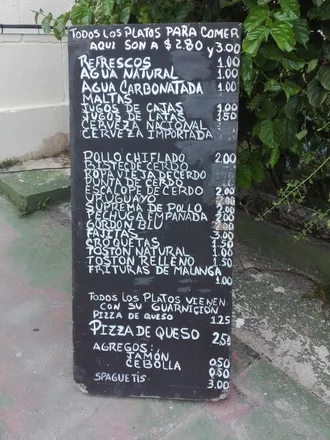 TODOS LOS PLATOS PARA COMER
AQUI SON A $2.80 Y 3.00
REFRESCOS 1.00
AGUA NATURAL 1.00
AGUA CARBONATADA 1.00
MALTAS
JUGOS DE CAJAS 1.00
JUGOS DE LATAS 1.50
CERVEZA NACIONAL
CERVEZA IMPORTADA
POLLO CHIFLADO 2.00
BISTE DE CERDO
ROPA VIEJA DE CERDO
DE CERDO
ESCALOPE DE CERDO 2.00
URUGUAYO
SUPREMA DE POLLO 2.00
PECHUGA EMPANADA 2.00
GORDON BLU
FAJITAS 3.00
CROQUETAS 1.50
TOSTON NATURAL 1.00
TOSTON RELLENO 1.50
FRITURAS DE MALANGA
1.00
TODOS LOS PLATOS VIENEN
CON SU GUARNICION
PIZZA DE QUESO 1.25
PIZZA DE QUESO 2.50
AGREGOS:
JAMÓN 0.50
CEBOLLA 0.50
SPAGUETIS 3.00